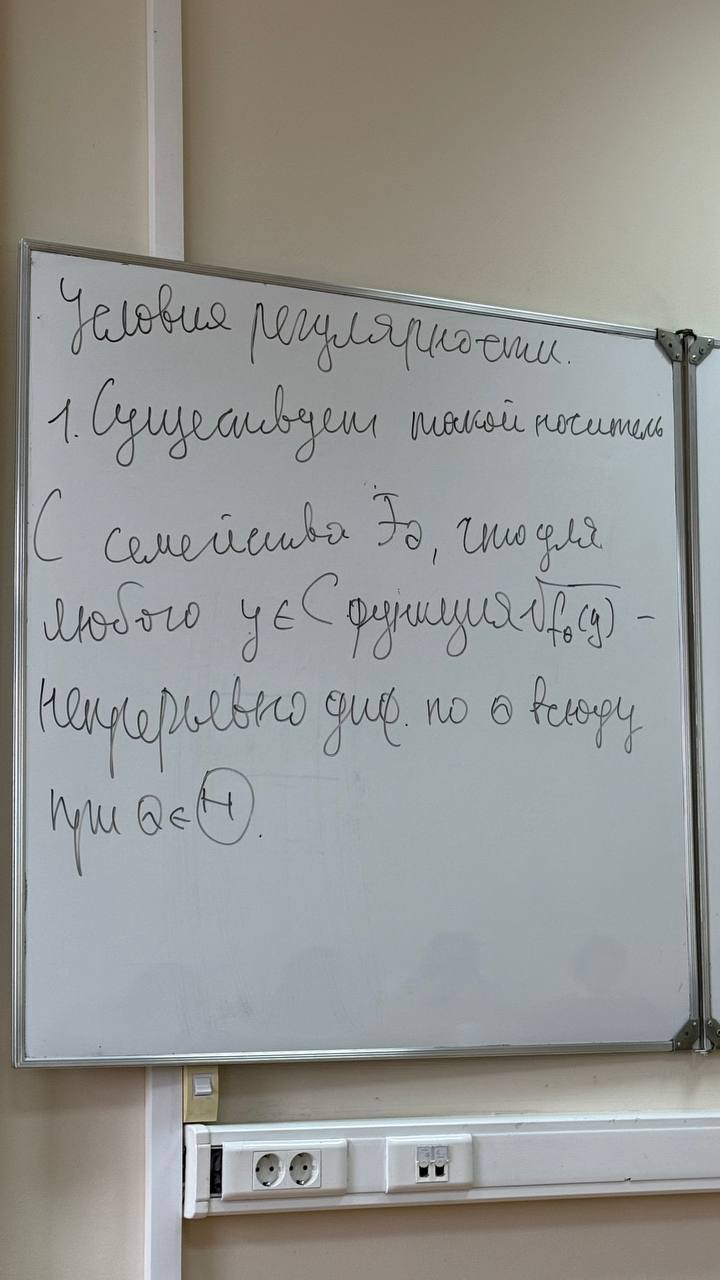 Условия регулярности.
1. Существует такой носитель
C семейства Fθ, что для
любого y ∈ C функция √fθ(y) –
непрерывно диф. по θ всюду
при θ ∈ Θ.